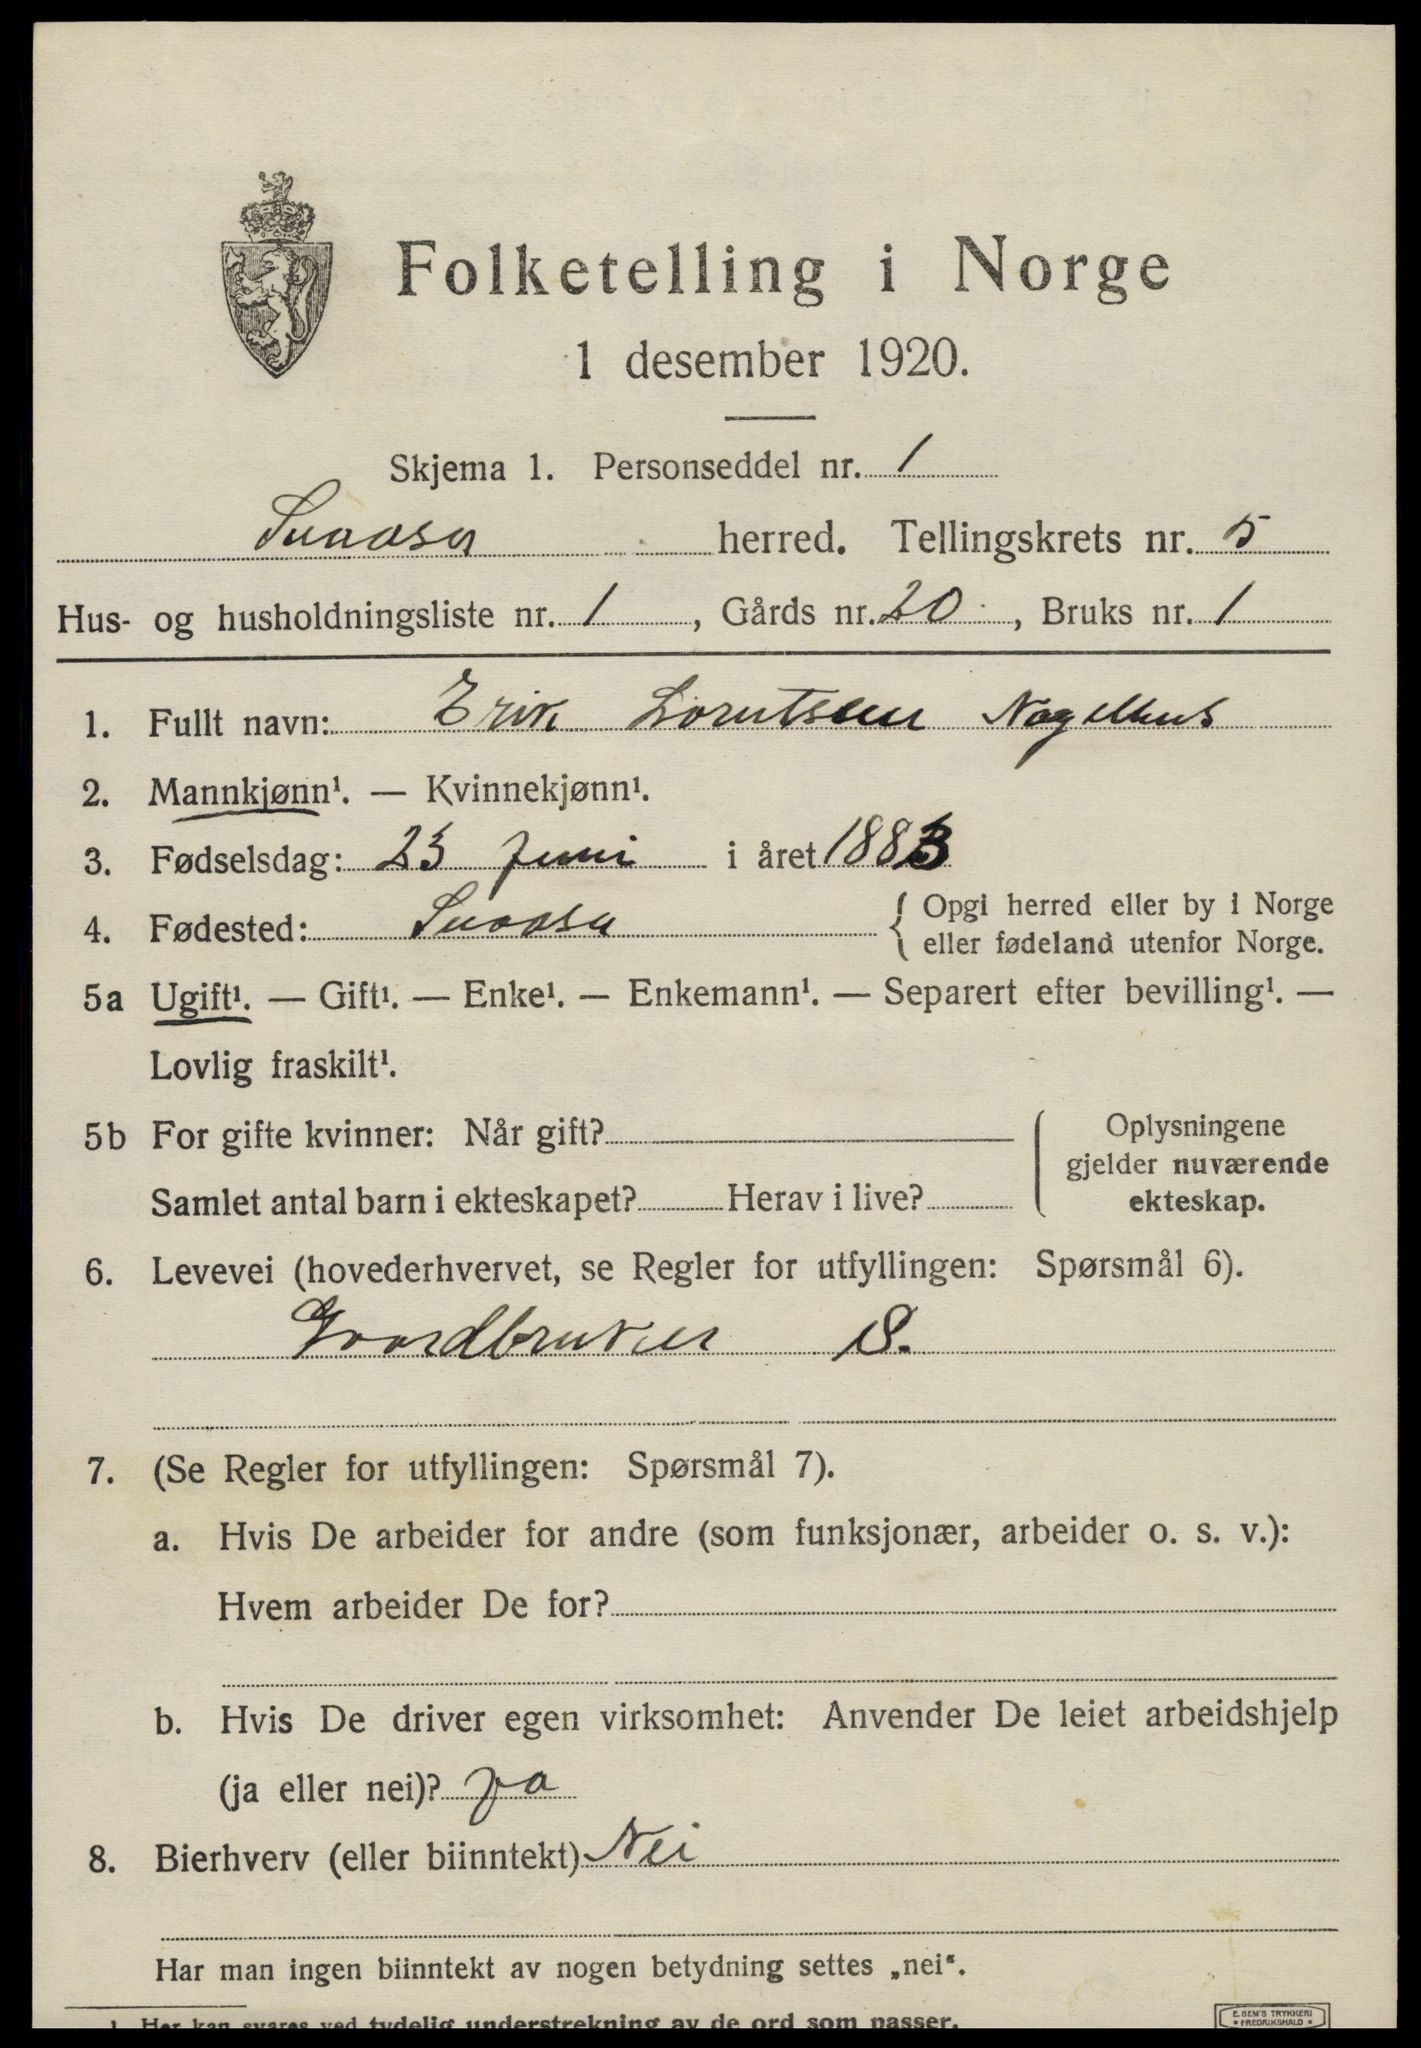 Folketelling i Norge
1 desember 1920.
Skjema 1. Personseddel nr. 1
Snaasa herred. Tellingskrets nr. 5
Hus- og husholdningsliste nr. 1, Gårds nr. 20, Bruks nr. 1
1. Fullt navn: Erik Lorntsen Nagelhus
2. Mannkjønn¹. — Kvinnekjønn¹.
3. Fødselsdag: 23 juni i året 1883
4. Fødested: Snaasa { Opgi herred eller by i Norge
eller fødeland utenfor Norge.
5a Ugift¹. — Gift¹. — Enke¹. — Enkemann¹. — Separert efter bevilling¹. —
Lovlig fraskilt¹.
5b For gifte kvinner: Når gift?
Samlet antal barn i ekteskapet? Herav i live?
Oplysningene
gjelder nuværende
ekteskap.
6. Levevei (hovederhvervet, se Regler for utfyllingen: Spørsmål 6).
Gaardbruker S.
7. (Se Regler for utfyllingen: Spørsmål 7).
a. Hvis De arbeider for andre (som funksjonær, arbeider o. s. v.):
Hvem arbeider De for?
b. Hvis De driver egen virksomhet: Anvender De leiet arbeidshjelp
(ja eller nei)? ja
8. Bierhverv (eller biinntekt) Nei
Har man ingen biinntekt av nogen betydning settes „nei“.
1 Her kan svares ved tydelig understrekning av de ord som passer.
E. SEM'S TRYKKERI
• FREDRIKSHALD •